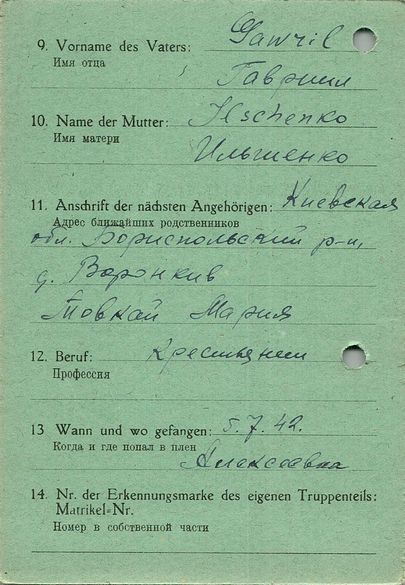 9. Vorname des Vaters: Gawril
Имя отца
Гавриил
10. Name der Mutter: Ilschenko
Имя матери
Ильшенко
11. Anschrift der nächsten Angehörigen: Киевская
Адрес ближайших родственников
обл. Бориспольский р-н,
д. Воронкив
Товкай Мария
12. Beruf: Крестьянин
Профессия
13 Wann und wo gefangen: 5. 7. 42.
Когда и где попал в плен
14. Nr. der Erkennungsmarke des eigenen Truppenteils:
Matrikel=Nr.
Номер в собственной части